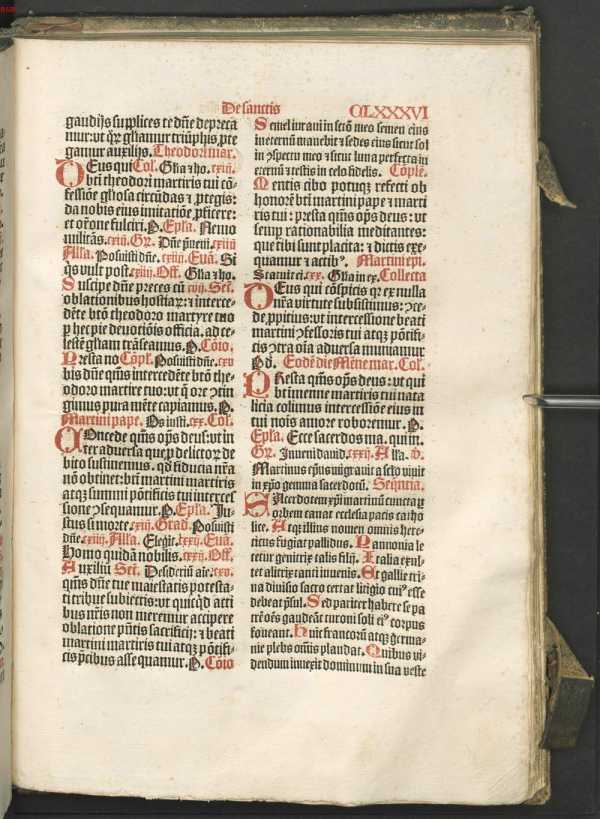 De sanctis CLXXXVI
gaudijs supplices te dñe depreca
mur: vt qͦꝝ gl̃iamur triũphis, ꝓte
gamur auxilijs. Theodori mar.
DEus qui Col. Gl̃ia ⁊ ho. cxiij.
bt̃i theodori martiris tui cõ-
fessiõe gl̃iosa circũdas ⁊ ꝓtegis:
da nobis eius imitatiõe ꝓficere:
et or̃one fulciri. P. Ep̃la. Nemo
militãs. cxiij. Gr̃. Dñe p̃ueni. cxiiij
Alla. Posuisti dñe. cxiiij. Euã. Si
q̃s vult post. cxiiij. Off. Gl̃ia ⁊ ho.
Suscipe dñe preces cũ cvij. Sec̃.
oblationibus hostiaꝝ: ⁊ interce-
dẽte bt̃o theodoro martyre tuo
ꝑ hec pie deuotiõis officia. ad ce-
lestẽ gl̃iam trãseamus. P. Cõio.
Presta no Cõpl̃. Posuisti dñe. cxv
bis dñe q̃ms intercedẽte bt̃o the-
odoro martire tuo: vt q̃ ore ↄtin
gimus pura mẽte capiamus. P.
Martini pape. Os iusti. cxx. Col.
COncede q̃ms op̃s deus: vt in
ter aduersa que ꝓ delictoꝝ de
bito sustinemus. qd̃ fiducia nr̃a
nõ obtinet: bt̃i martini martiris
atqꝫ summi põtificis tui interces
sione ↄsequamur. P. Ep̃la. Iu-
stus si morte. cxij. Grad. Posuisti
dñe. cxiiij. Alla. Elegit. cxxij. Euã.
Homo quidã nobilis. cxxij. Off.
Auxiliũ Sec̃. Desideriũ aĩe. cxv.
q̃ms dñe tue maiestatis potesta-
ti tribue subiectis: vt quicq̃d acti
bus nr̃is non meremur accipere
oblatione p̃ntis sacrificij: ⁊ beati
martini martiris tui atqꝫ põtifi-
cis p̃cibus assequamur. P. Cõio
Semel iuraui in sct̃o meo semen eius
in eternũ manebit ⁊ sedes eius sicut sol
in ↄspectu meo ⁊ sicut luna perfecta in
eternũ ⁊ testis in celo fidelis. Cõple.
Mentis cibo potuqꝫ refecti ob
honorẽ bt̃i martini pape ⁊ marti
ris tui: presta q̃ms op̃s deus: vt
semꝑ rationabilia meditantes:
que tibi sunt placita: ⁊ dictis exe-
quamur ⁊ actibꝰ. Martini ep̃i.
Statuit ei. cxx. Gl̃ia in ex. Collecta
DEus qui cõspicis qꝛ ex nulla
nr̃a virtute subsistimus: ↄce-
de, ꝓpitius: vt intercessione beati
martini ↄfessoris tui atqꝫ põtifi-
cis ↄtra oĩa aduersa muniamur
P d. Eodẽ die Mẽne mar. Col.
PResta q̃ms op̃s deus: vt qui
bt̃i menne martiris tui nata
licia colimus intercessiõe eius in
tui noĩs amore roboremur. P.
Ep̃la. Ecce sacerdos ma. qui in.
Gr̃. Inueni dauid. cxxij. Alla. v.
Martinus ep̃us migrauit a sc̃lo viuit
in xp̃o gemma sacerdotũ. Seq̃ntia.
SAcerdotem xp̃i martinũ cuncta ꝑ
orbem canat ecclesia pacis catho
lice. Atqꝫ illius nomen omnis here-
ticus fugiat pallidus. Pannonia le
tetur genitrix talis filij. Italia exul-
tet alitrix tanti iuuenis. Et gallie tri-
na diuisio sacro certat litigio cuiꝰ esse
debeat p̃sul. Sed pariter habere se pa
trẽ oẽs gaudeãt turoni soli eiꝰ corpus
foueant. Huic francorũ atqꝫ germa-
nie plebs oĩs plaudat. Quibus vi-
dendum inuexit dominum in sua veste